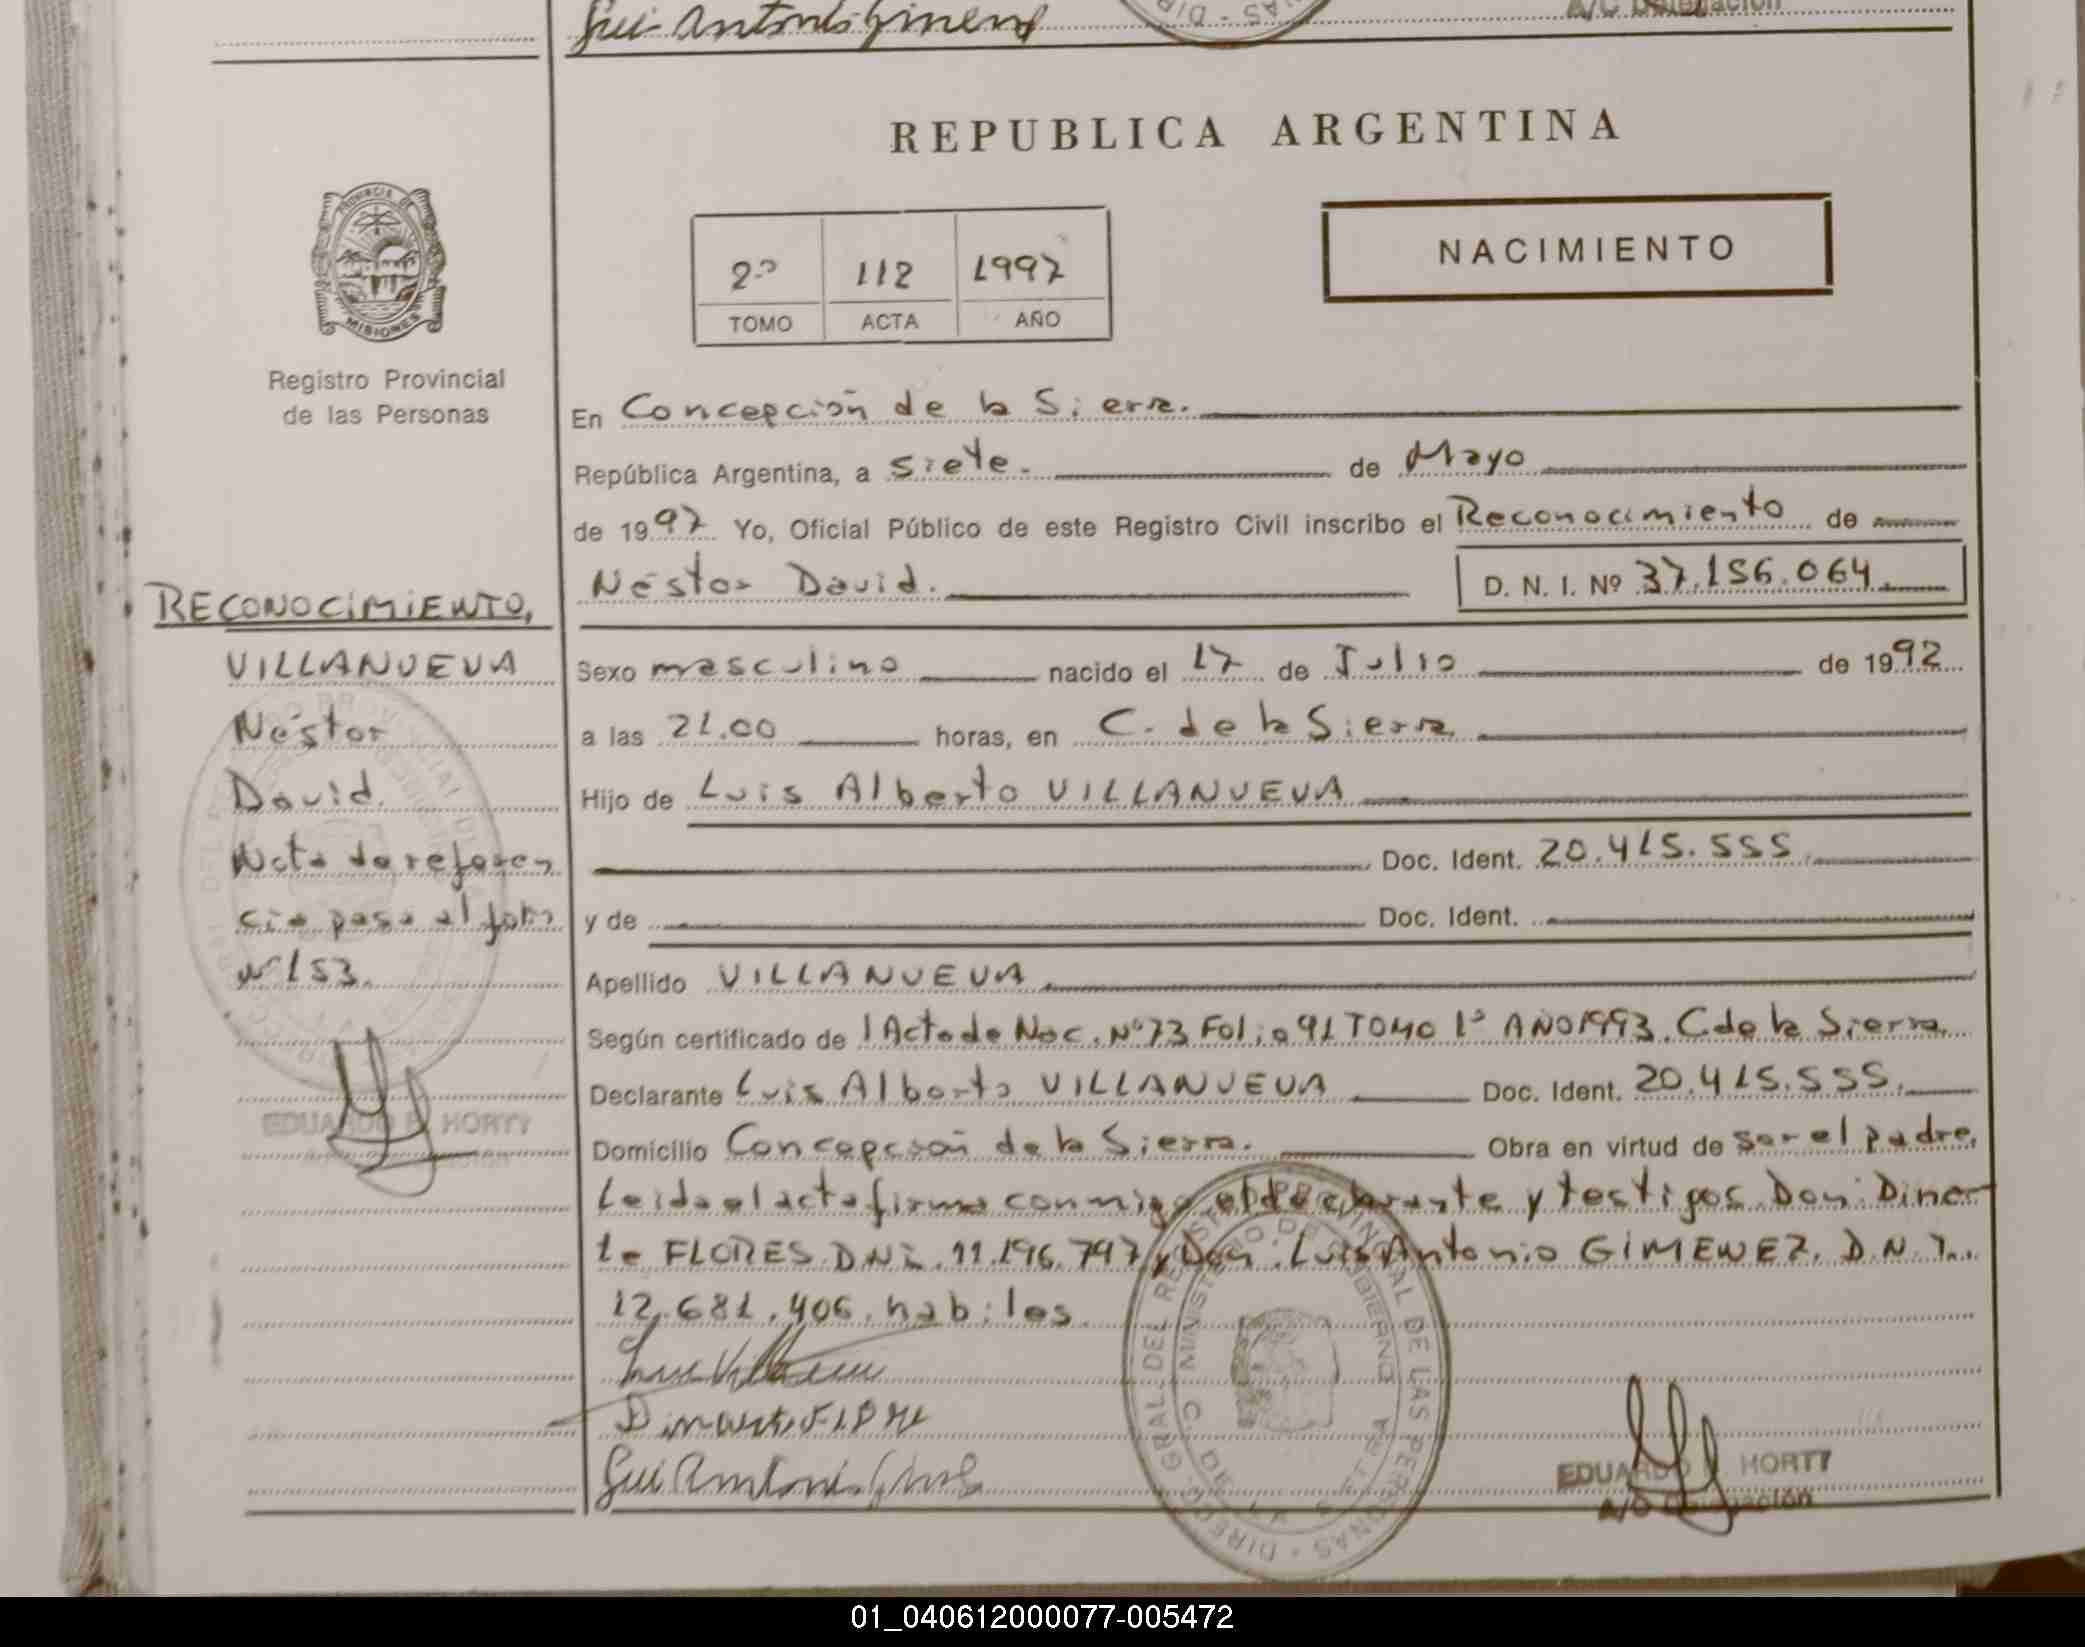 Luis Antonio Gimenez
A/C Delegación
REPUBLICA ARGENTINA
PROVINCIA DE MISIONES
2º 112 1997
TOMO ACTA AÑO
NACIMIENTO
Registro Provincial
de las Personas
En Concepción de la Sierra.
República Argentina, a siete. de Mayo
de 1997 Yo, Oficial Público de este Registro Civil inscribo el Reconocimiento de
Néstor David. D. N. I. Nº 37.156.064.
RECONOCIMIENTO,
VILLANUEVA
Néstor
David.
Nota de referen
cia pasa al folio
nº 153.
EDUARDO HORTT
Sexo masculino nacido el 17 de Julio de 1992
a las 21.00 horas, en C. de la Sierra.
Hijo de Luis Alberto VILLANUEVA
Doc. Ident. 20.415.555.
y de Doc. Ident.
Apellido VILLANUEVA
Según certificado de 1 Acta de Nac. Nº 73 Folio 91 TOMO 1º AÑO 1993. C de la Sierra.
Declarante Luis Alberto VILLANUEVA Doc. Ident. 20.415.555.
Domicilio Concepción de la Sierra. Obra en virtud de ser el padre.
Leida el acta firma conmigo el declarante y testigos Don: Dinar
te FLORES DNI. 11.196.797 y Don: Luis Antonio GIMENEZ. D.N.I.
12.681.406. habiles
DIREC. GRAL. DEL REGISTRO PROVINCIAL DE LAS PERSONAS
MINISTERIO DE GOBIERNO
EDUARDO HORTT
A/C Delegación
01_040612000077-005472